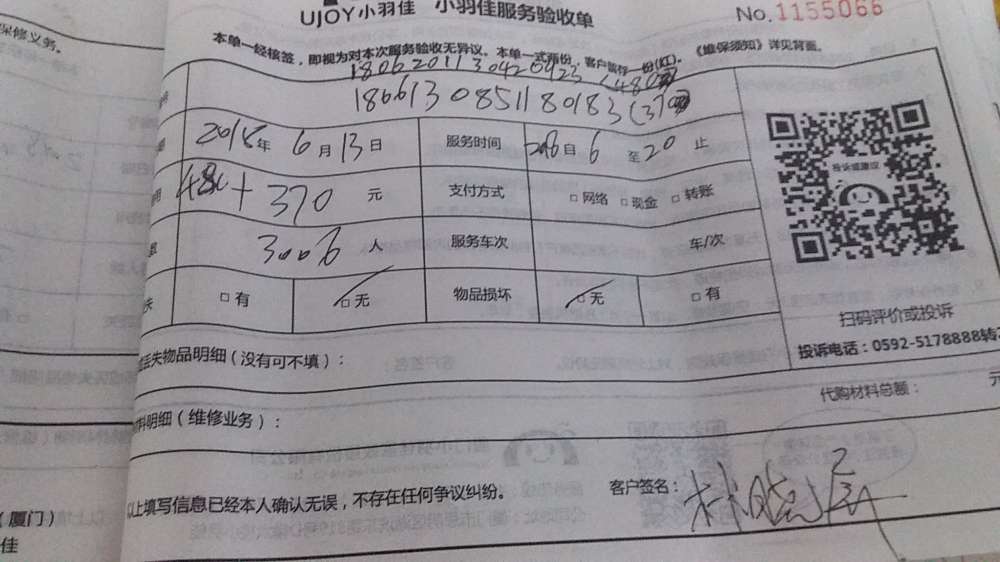 保修义务。
UJOY小羽佳 小羽佳服务验收单
No.1155066
本单一经核签，即视为对本次服务验收无异议。本单一式两份，客户暂存一份(红)。《维保须知》详见背面。
1806201130420923 (480)
1806130851180183 (370)
2018年 6月13日 服务时间 自 6 至 20 止
480+370 元 支付方式 □网络 □现金 □转账
3006 人 服务车次 车/次
□有 □无 物品损坏 □无 □有
投诉或建议
扫码评价或投诉
投诉电话：0592-5178888转
丢失物品明细（没有可不填）：
料明细（维修业务）： 代购材料总额： 元
以上填写信息已经本人确认无误，不存在任何争议纠纷。 客户签名：
（厦门）
佳